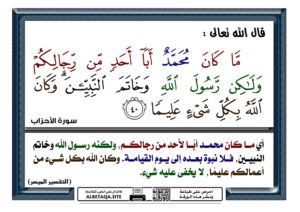 قال الله تعالى :
مَّا كَانَ مُحَمَّدٌ أَبَآ أَحَدٍ مِّن رِّجَالِكُمْ
وَلَٰكِن رَّسُولَ ٱللَّهِ وَخَاتَمَ ٱلنَّبِيِّـۧنَۗ وَكَانَ
ٱللَّهُ بِكُلِّ شَىْءٍ عَلِيمًا ٤٠
سورة الأحزاب
أي ما كان محمد أبًا لأحد من رجالكم، ولكنه رسول الله وخاتم
النبيين، فلا نبوة بعده إلى يوم القيامة. وكان الله بكل شيء من
أعمالكم عليمًا، لا يخفى عليه شيء.
(التفسير الميسر)
ALBETAQA.SITE